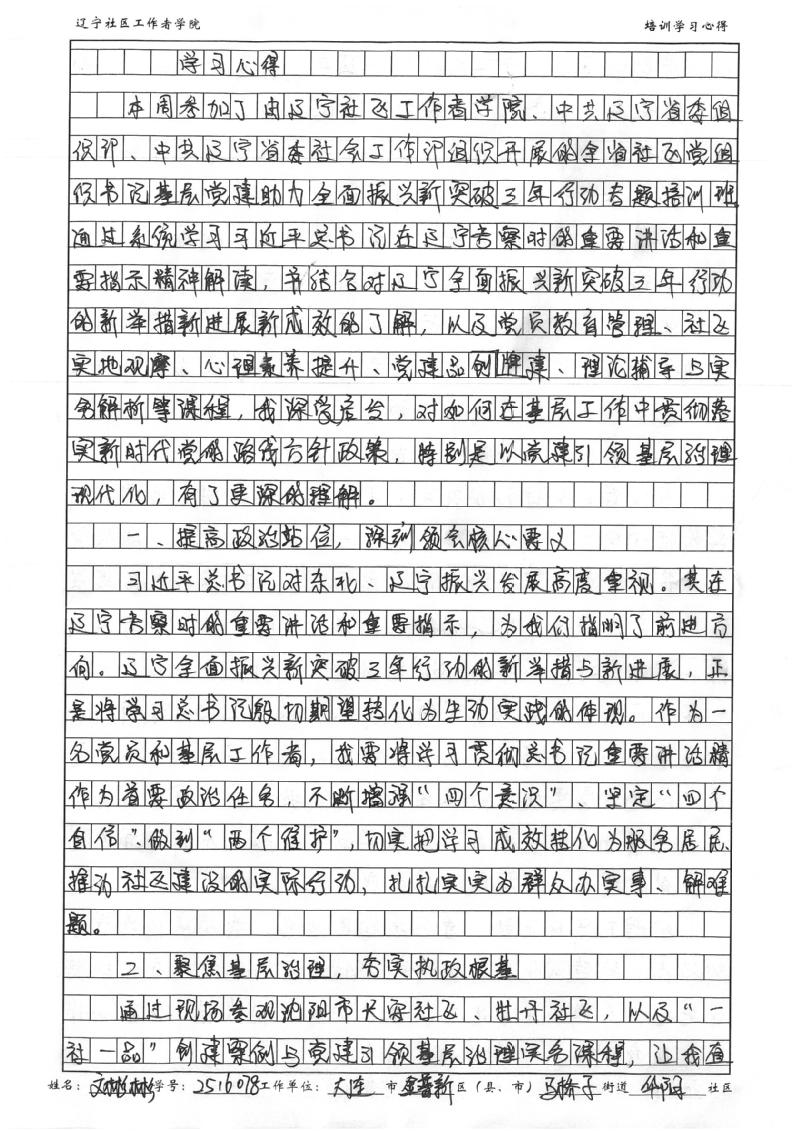 辽宁社区工作者学院 培训学习心得
学习心得
本周参加了由辽宁社区工作者学院、中共辽宁省委组
织部、中共辽宁省委社会工作部组织开展的全省社区党组
织书记基层党建助力全面振兴新突破三年行动专题培训班
通过系统学习习近平总书记在辽宁考察时的重要讲话和重
要指示精神解读，并结合对辽宁全面振兴新突破三年行动
的新举措新进展新成效的了解，以及党员教育管理、社区
实地观摩、心理素养提升、党建品创牌建、理论辅导与实
务解析等课程，我深受启发，对如何在基层工作中贯彻落
实新时代党的路线方针政策，特别是以党建引领基层治理
现代化，有了更深的理解。
一、提高政治站位，深训领会核心要义
习近平总书记对东北、辽宁振兴发展高度重视。其在
辽宁考察时的重要讲话和重要指示，为我们指明了前进方
向。辽宁全面振兴新突破三年行动的新举措与新进展，正
是将学习总书记殷切期望转化为生动实践的体现。作为一
名党员和基层工作者，我要将学习贯彻总书记重要讲话精
作为首要政治任务，不断增强“四个意识”、坚定“四个
自信”、做到“两个维护”，切实把学习成效转化为服务居民
推动社区建设的实际行动，扎扎实实为群众办实事、解难
题。
二、聚焦基层治理，夯实执政根基
通过现场参观沈阳市长安社区、牡丹社区，以及“一
社一品”创建案例与党建引领基层治理实务课程，让我直
姓名：文彬彬 学号：2516078 工作单位：大连 市 金普新 区（县、市）马桥子 街道 社区